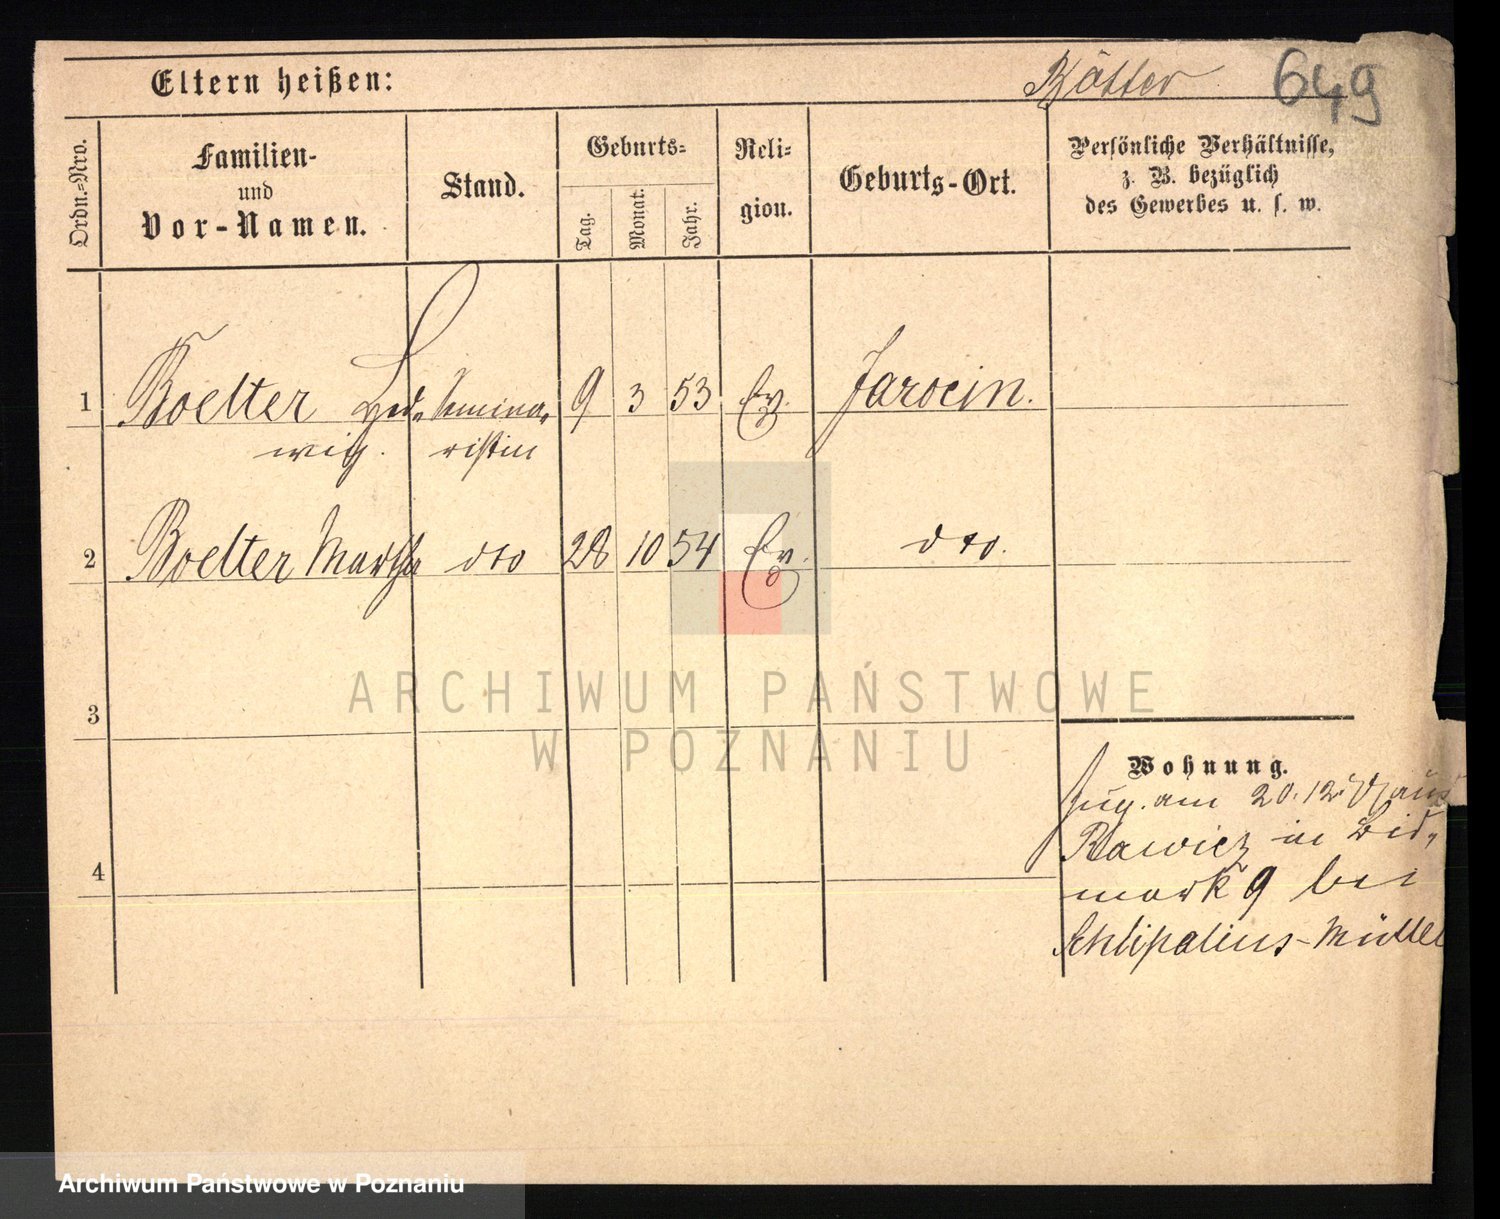 Eltern heißen:
Bölter 649
Ordn.-Nro.
Familien-
und
Vor-Namen.
Stand.
Geburts-
Tag.
Monat.
Jahr.
Reli-
gion.
Geburts-Ort.
Persönliche Verhältnisse,
z. B. bezüglich
des Gewerbes u. s. w.
1 Boelter Hed- Semina- 9 3 53 Ev. Jarocin.
wig. ristin
2 Boelter Martha dto 28 10 54 Ev. dto.
3
4
Wohnung.
Zug. am 20.12. aus
Rawicz in Bis-
mark 9 bei
Schlipalius-Müller
ARCHIWUM PAŃSTWOWE
W POZNANIU
Archiwum Państwowe w Poznaniu